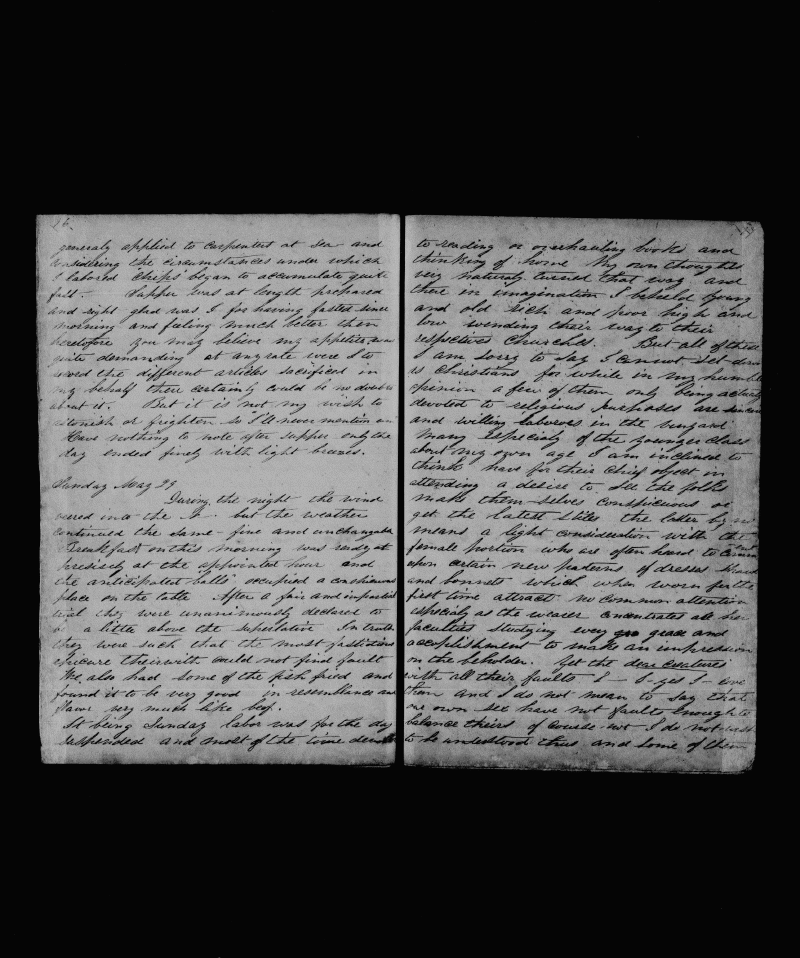 generaly applied to carpenters at sea and
considering the circumstances under which
I labored "Chips" began to accumulate quite
fast. Supper was at length prepared
and right glad was I for having fasted since
morning and feeling much better then
heretofore you may believe my appetite was
quite demanding at any rate were I to
record the different articles sacrificed in
my behalf there certainly could be no doubts
about it. But it is not my wish to
astonish or frighten so I'll never mention
Have nothing to note after supper only the
day ended finely with light breezes.
Sunday May 29
During the night the wind
veered in to the but the weather
continued the same fine and unchangable
Breakfast on this morning was ready at
presisely at the appointed hour and
the anticipated "balls" occupied a conspicuous
place on the table After a fair and impartial
trial they were unanimously declared to
be a little above the superlative In truth
they were such that the most fastidious
epicure therewith could not find fault
We also had some of the fish fried and
found it to be very good in resemblance and
flavor very much like beef.
It being Sunday labor was for the day
suspended and most of the time devoted
to reading or overhauling books and
thinking of home My own thoughts
very naturaly turned that way and
there in imagination I beheld young
and old rich and poor high and
low wending their way to their
respective Churches. But all of these
I am sorry to say I cannot set down
as Christians for while in my humble
opinion a few of them only being actually
devoted to religious purposes are sincere
and willing laborers in the vinyard
many especialy of the younger class
about my own age I am inclined to
think have for their chief object in
attending a desire to see the folks
make them-selves conspicuous or
get the latest stiles the latter by no
means a light consideration with the
female portion who are often heard to
upon certain new patterns of dresses shawls
and bonnets which when worn for the
first time attract no common attention
especialy as the wearer concentrates all her
faculties studying every grace and
accomplishment to make an impression
on the beholder. Yet the dear creatures
with all their faults I - O - yes I - love
them and I do not mean to say that
our own sex have not faults enough to
balance theirs of course not I do not wish
to be understood thus and some of them